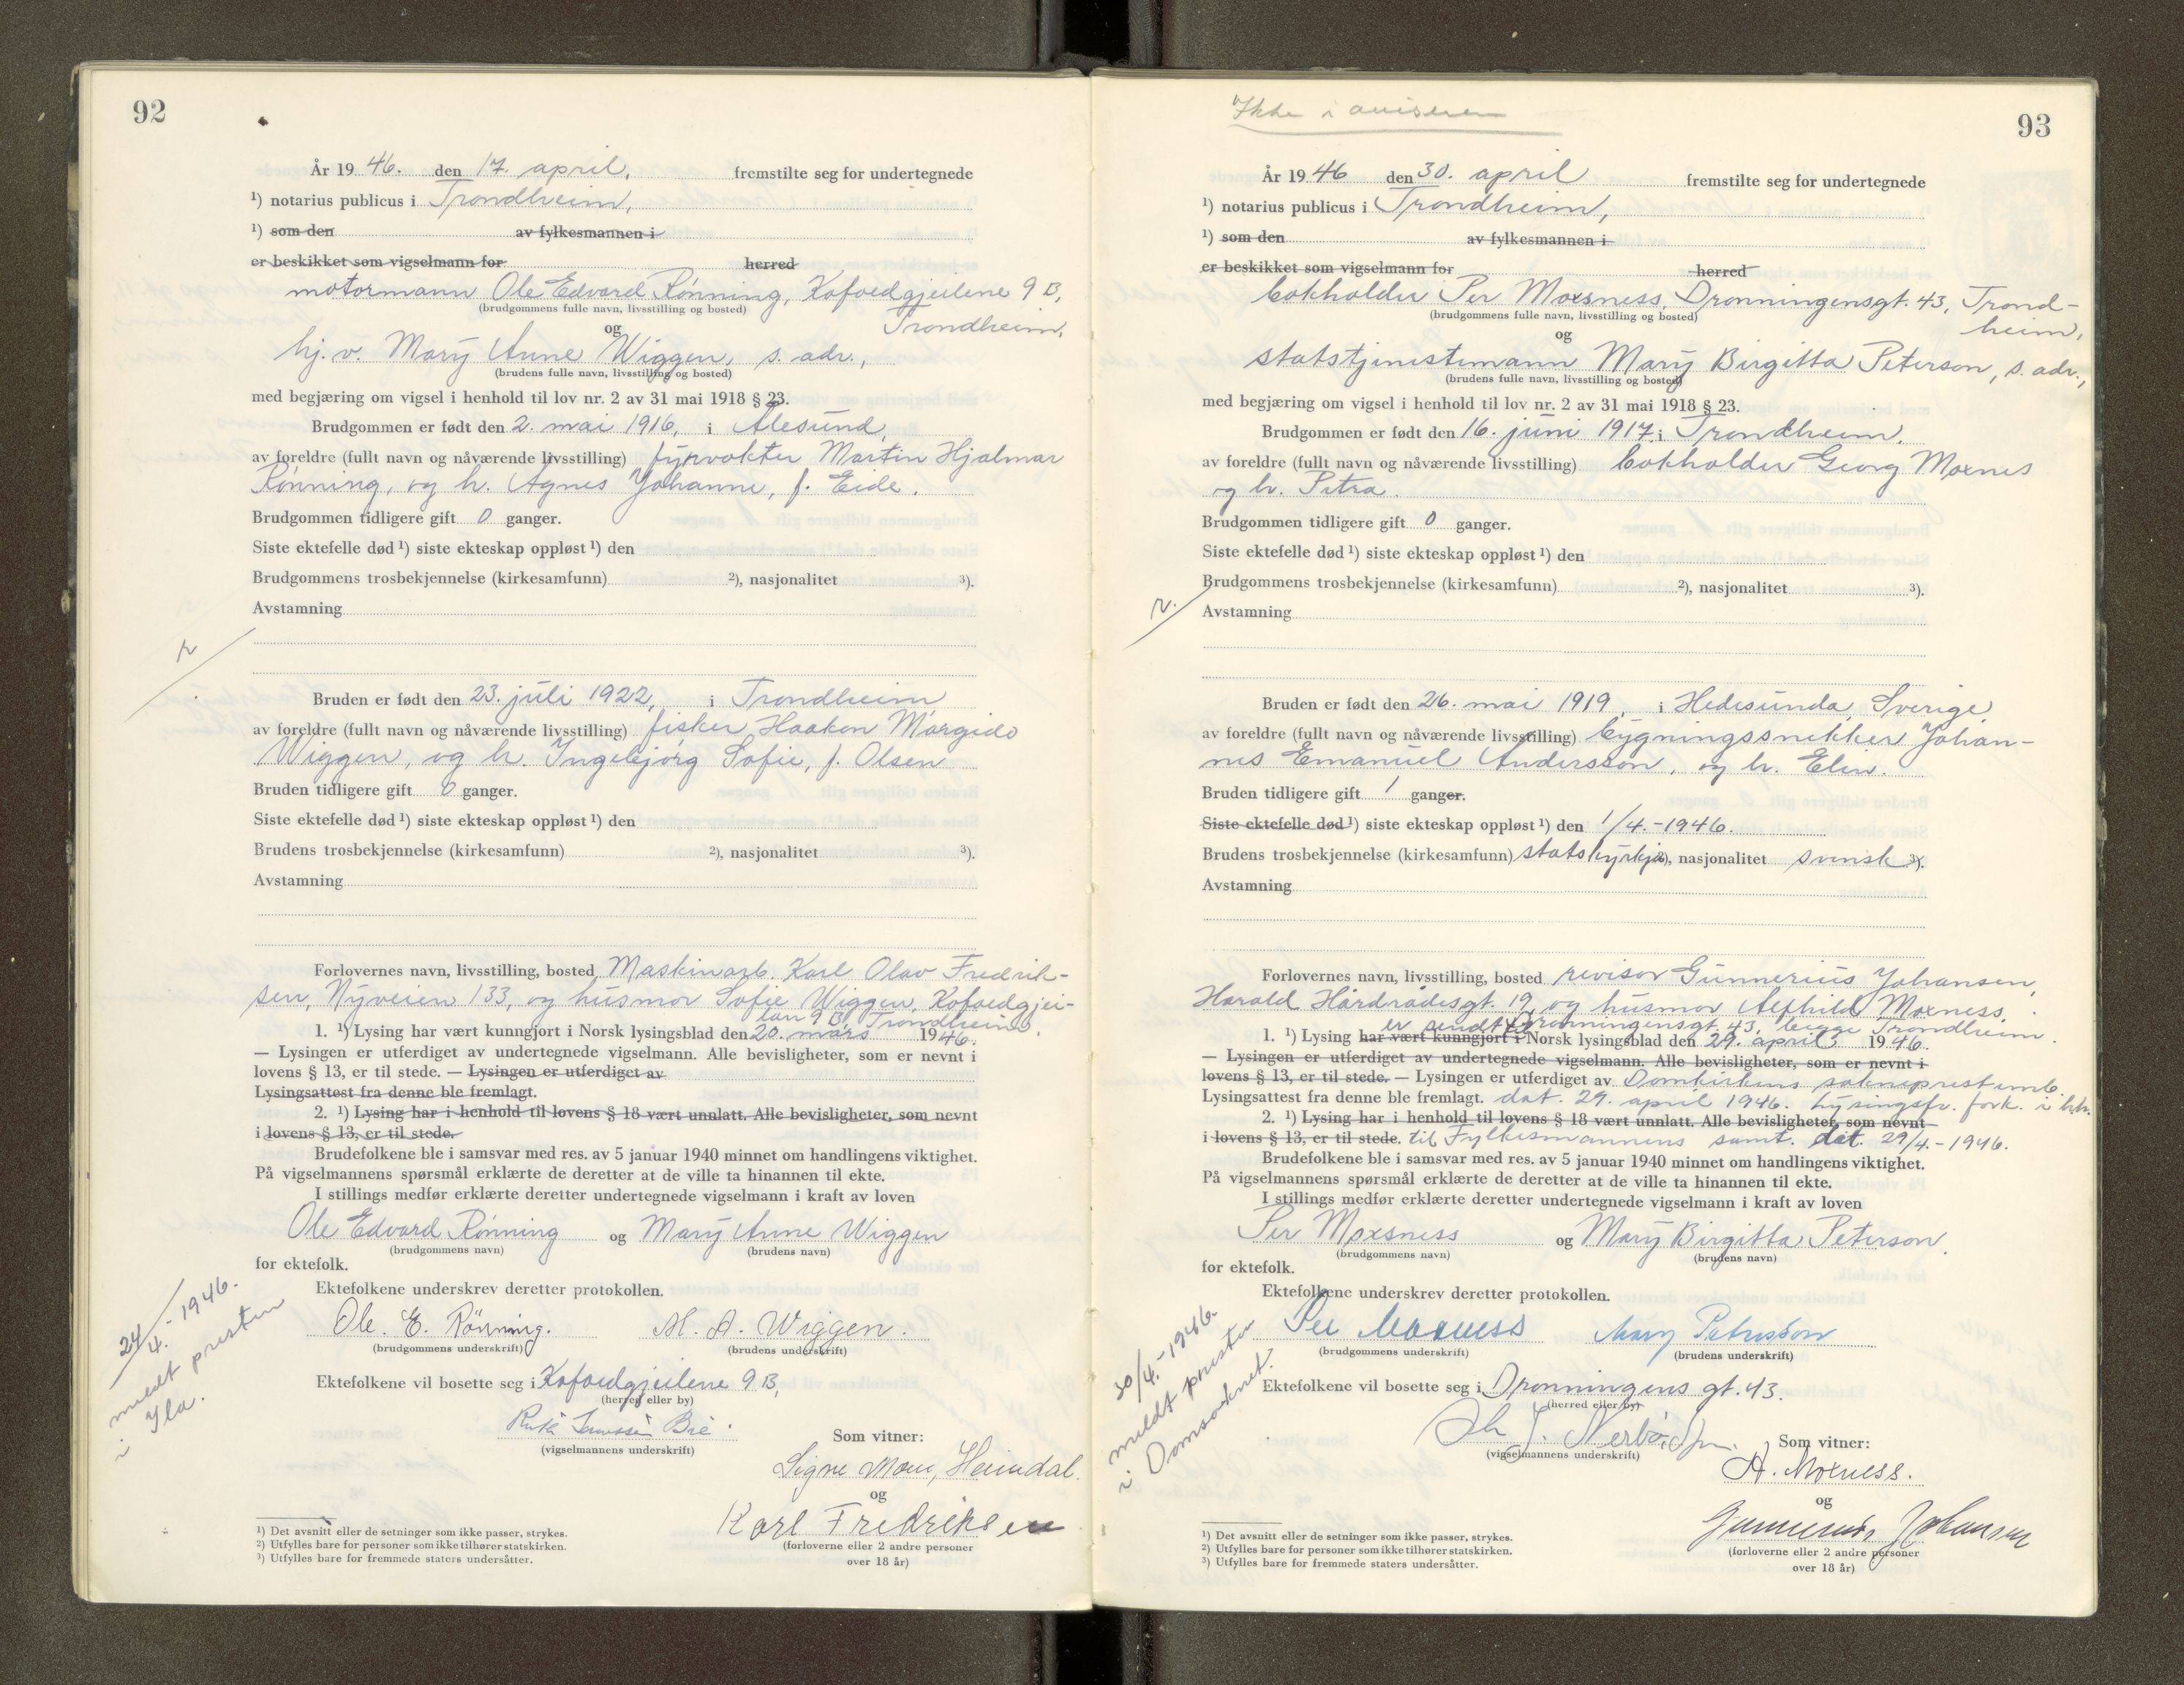 92
År 1946. den 17. april, fremstilte seg for undertegnede
1) notarius publicus i Trondheim,
1) som den av fylkesmannen i
er beskikket som vigselmann for herred
motormann Ole Edvard Rønning, Kofoedgjeilene 9 B,
(brudgommens fulle navn, livsstilling og bosted)
Trondheim,
og
hj. v. Mary Anne Wiggen, s. adr.,
(brudens fulle navn, livsstilling og bosted)
med begjæring om vigsel i henhold til lov nr. 2 av 31 mai 1918 § 23.
Brudgommen er født den 2. mai 1916, i Ålesund,
av foreldre (fullt navn og nåværende livsstilling) fyrvokter Martin Hjalmar
Rønning, og h. Agnes Johanne, f. Eide.
Brudgommen tidligere gift 0 ganger.
Siste ektefelle død 1) siste ekteskap oppløst 1) den
Brudgommens trosbekjennelse (kirkesamfunn) 2), nasjonalitet 3).
Avstamning
Bruden er født den 23. juli 1922, i Trondheim
av foreldre (fullt navn og nåværende livsstilling) fisker Haakon Margido
Wiggen, og h. Ingebjørg Sofie, f. Olsen
Bruden tidligere gift 0 ganger.
Siste ektefelle død 1) siste ekteskap oppløst 1) den
Brudens trosbekjennelse (kirkesamfunn) 2), nasjonalitet 3).
Avstamning
Forlovernes navn, livsstilling, bosted Maskinarb. Karl Olav Fredrik-
sen, Nyveien 133, og husmor Sofie Wiggen, Kofoedgjei-
lan 9 B, Trondheim.
1. 1) Lysing har vært kunngjort i Norsk lysingsblad den 20. mars 1946.
— Lysingen er utferdiget av undertegnede vigselmann. Alle bevisligheter, som er nevnt i
lovens § 13, er til stede. — Lysingen er utferdiget av
Lysingsattest fra denne ble fremlagt.
2. 1) Lysing har i henhold til lovens § 18 vært unnlatt. Alle bevisligheter, som nevnt
i lovens § 13, er til stede.
Brudefolkene ble i samsvar med res. av 5 januar 1940 minnet om handlingens viktighet.
På vigselmannens spørsmål erklærte de deretter at de ville ta hinannen til ekte.
I stillings medfør erklærte deretter undertegnede vigselmann i kraft av loven
Ole Edvard Rønning og Mary Anne Wiggen
(brudgommens navn) (brudens navn)
for ektefolk.
Ektefolkene underskrev deretter protokollen.
Ole. E. Rönning. M. A. Wiggen.
(brudgommens underskrift) (brudens underskrift)
24/4.-1946.
meldt presten
i Ila.
Ektefolkene vil bosette seg i Kofoedgjeilene 9 B,
(herred eller by)
(vigselmannens underskrift)
Som vitner:
Signe Moen, Heimdal.
og
Karl Fredriksen
(forloverne eller 2 andre personer
over 18 år)
1) Det avsnitt eller de setninger som ikke passer, strykes.
2) Utfylles bare for personer som ikke tilhører statskirken.
3) Utfylles bare for fremmede staters undersåtter.
Ikke i avisene
93
År 1946 den 30. april fremstilte seg for undertegnede
1) notarius publicus i Trondheim,
1) som den av fylkesmannen i
er beskikket som vigselmann for herred
bokholder Per Moxness, Dronningensgt. 43, Trond-
(brudgommens fulle navn, livsstilling og bosted)
heim,
og
statstjenestemann Mary Birgitta Peterson, s. adr.,
(brudens fulle navn, livsstilling og bosted)
med begjæring om vigsel i henhold til lov nr. 2 av 31 mai 1918 § 23.
Brudgommen er født den 16. juni 1917, i Trondheim,
av foreldre (fullt navn og nåværende livsstilling) bokholder Georg Moxnes
og h. Petra.
Brudgommen tidligere gift 0 ganger.
Siste ektefelle død 1) siste ekteskap oppløst 1) den
Brudgommens trosbekjennelse (kirkesamfunn) 2), nasjonalitet 3).
Avstamning
Bruden er født den 26. mai 1919, i Hedesunda, Sverige,
av foreldre (fullt navn og nåværende livsstilling) bygningssnekker Johan-
nes Emanuel Andersson, og h. Elin.
Bruden tidligere gift 1 ganger.
Siste ektefelle død 1) siste ekteskap oppløst 1) den 1/4.-1946.
Brudens trosbekjennelse (kirkesamfunn) statskyrkja 2), nasjonalitet svensk 3).
Avstamning
Forlovernes navn, livsstilling, bosted revisor Gunnerius Johansen,
Harald Hårdrådesgt. 19, og husmor Alfhild Moxness,
er sendt Dronningensgt. 43, begge Trondheim.
1. 1) Lysing har vært kunngjort i Norsk lysingsblad den 29. april 1946.
— Lysingen er utferdiget av undertegnede vigselmann. Alle bevisligheter, som er nevnt i
lovens § 13, er til stede. — Lysingen er utferdiget av Domkirkens sokneprestemb.
Lysingsattest fra denne ble fremlagt. dat. 29. april 1946. Lysingsfr. fork. i hh.
2. 1) Lysing har i henhold til lovens § 18 vært unnlatt. Alle bevisligheter, som nevnt
i lovens § 13, er til stede. til Fylkesmannens samt. dat. 29/4.-1946.
Brudefolkene ble i samsvar med res. av 5 januar 1940 minnet om handlingens viktighet.
På vigselmannens spørsmål erklærte de deretter at de ville ta hinannen til ekte.
I stillings medfør erklærte deretter undertegnede vigselmann i kraft av loven
Per Moxsness og Mary Birgitta Peterson.
(brudgommens navn) (brudens navn)
for ektefolk.
Ektefolkene underskrev deretter protokollen.
Per Moxness Mary Petersson
(brudgommens underskrift) (brudens underskrift)
30/4.-1946.
meldt presten
i Domsoknet.
Ektefolkene vil bosette seg i Dronningens gt. 43.
(herred eller by)
(vigselmannens underskrift)
Som vitner:
A. Moxness.
og
Gunnerius Johansen
(forloverne eller 2 andre personer
over 18 år)
1) Det avsnitt eller de setninger som ikke passer, strykes.
2) Utfylles bare for personer som ikke tilhører statskirken.
3) Utfylles bare for fremmede staters undersåtter.